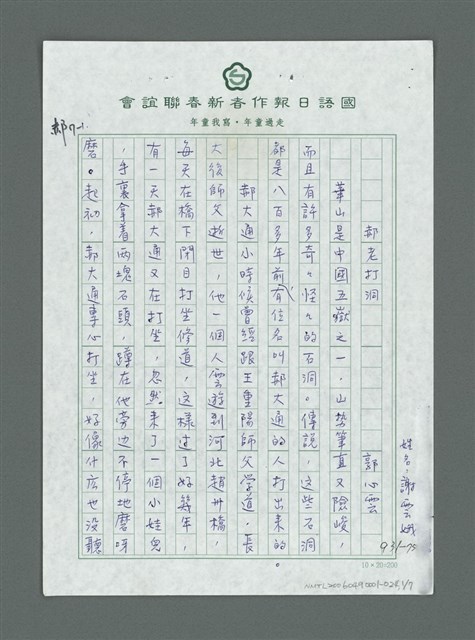 國語日報作者新春聯誼會
走過童年・寫我童年
郝7-1
姓名:謝雲娥
931-75
郝老打洞　　郭心雲
華山是中國五嶽之一,山勢筆直又險峻,
而且有許多奇奇怪怪的石洞。傳說,這些石洞
都是八百多年前有位名叫郝大通的人打出來的。
郝大通小時候曾經跟王重陽師父學道,長
大後師父逝世,他一個人雲遊到河北趙州橋,
每天在橋下閉目打坐修道,這樣過了好幾年,
有一天郝大通又在打坐,忽然來了一個小娃兒
,手裏拿着两塊石頭,蹲在他旁边不停地磨呀
磨。起初,郝大通專心打坐,好像什広也沒聽
10×20=200
NMTL200500490001-028.1/7